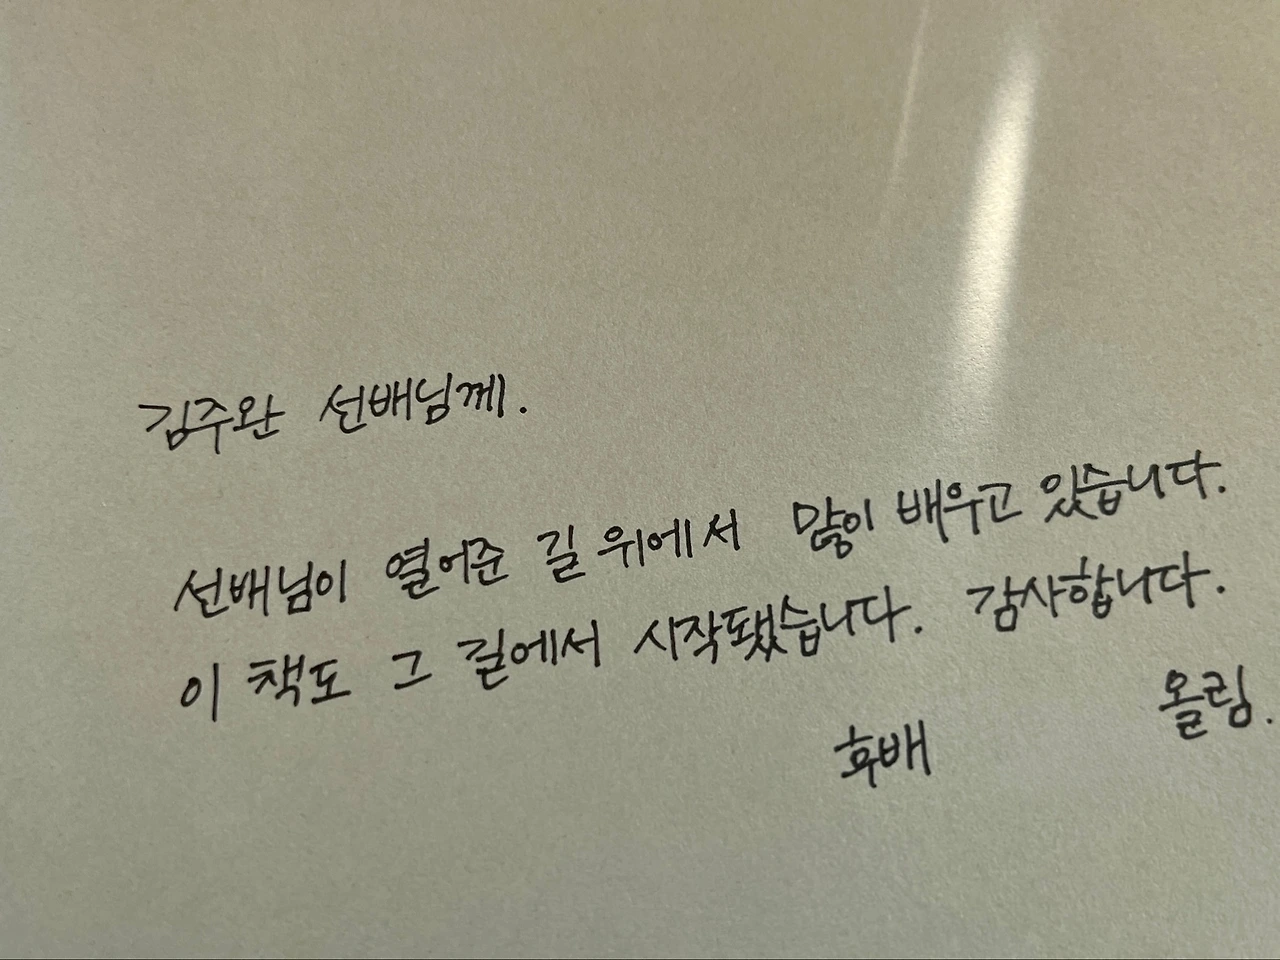 김주완 선배님께.
선배님이 열어준 길 위에서 많이 배우고 있습니다.
이 책도 그 길에서 시작됐습니다. 감사합니다.
후배 올림.